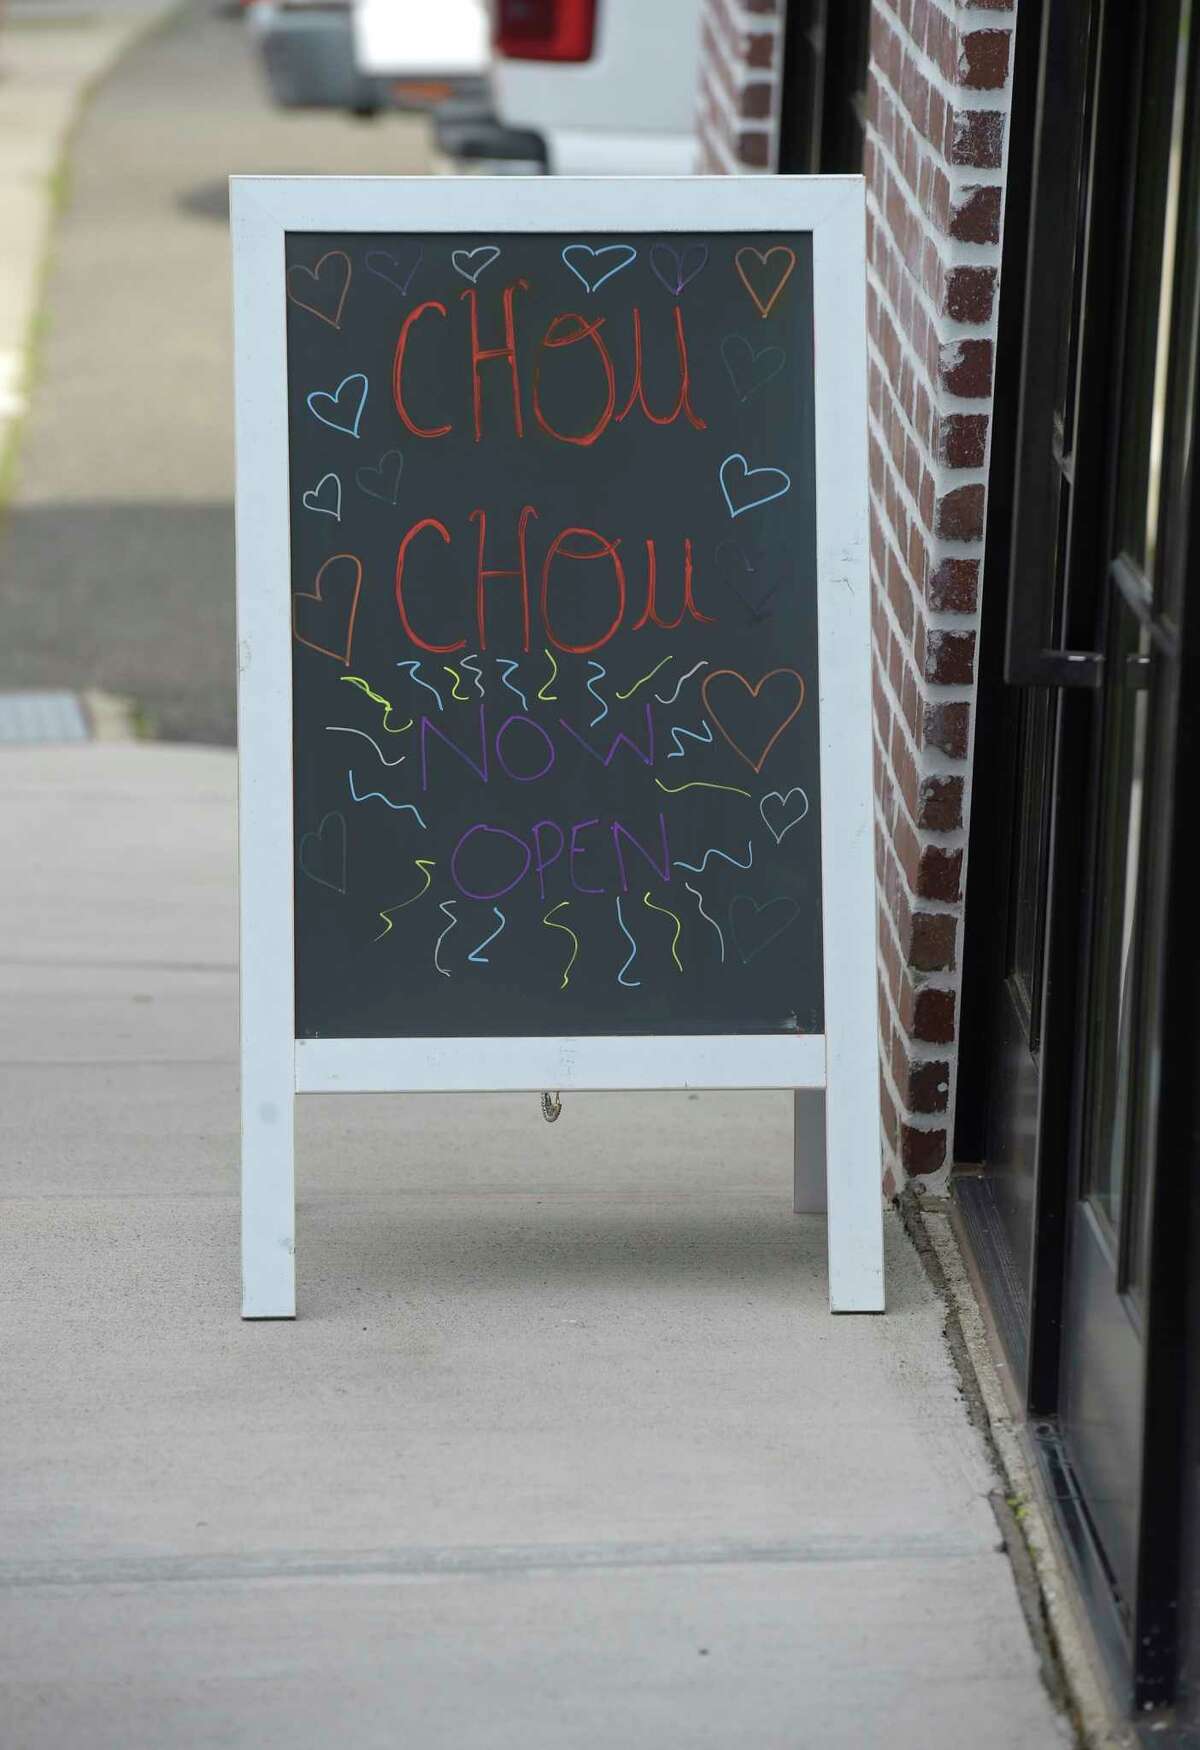 CHOU
CHOU
NOW
OPEN